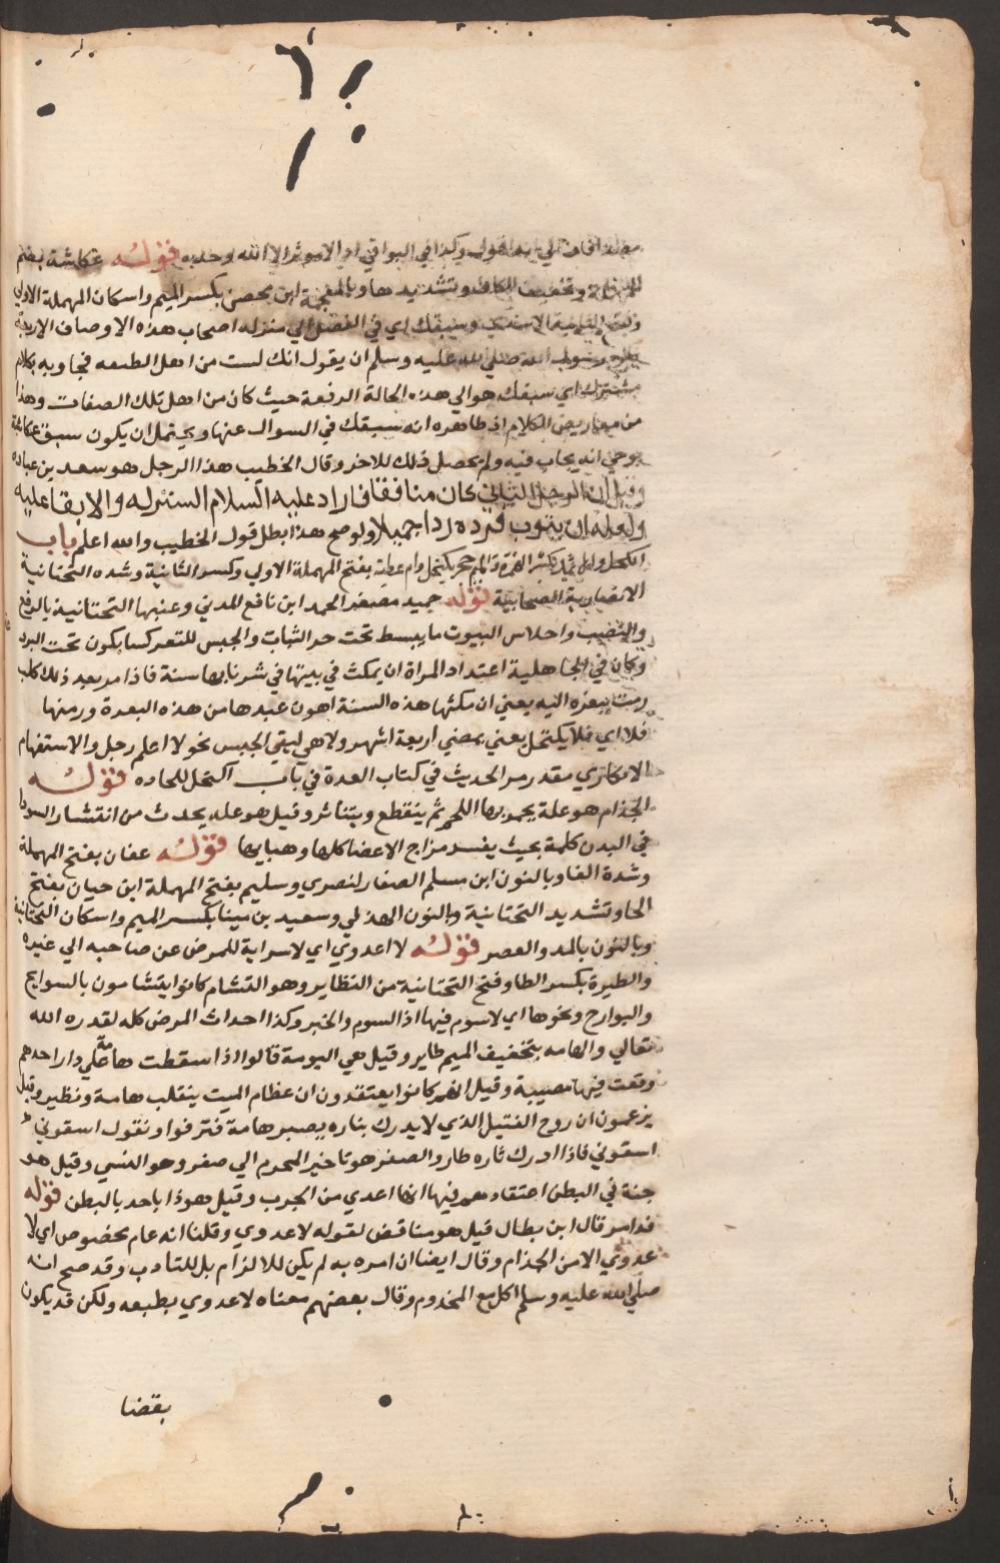 وكذا في البواقي الله وحده قوله عكاشة بضم
المهملة وتخفيف الكاف وتشديدها وبالمعجمة ابن محصن بكسر الميم واسكان المهملة الاولى
وسبقك اي في الفضل الي منزله اصحاب هذه الاوصاف الاربعة
رسول الله صلي الله عليه وسلم ان يقول انك لست من اهل الطبعه فجاوبه بكلام
مشترك اي سبقك هو الي هذه الحالة الرفعة حيث كان من اهل تلك الصفات وهذا
من معاريض الكلام اذ ظاهره انه سبقك في السوال عنها ويحتمل ان يكون سبق عكاشة
بوحي انه يجاب فيه ولم يحصل ذلك للاخر وقال الخطيب هذا الرجل هو سعد بن عباده
وقيل ان الرجل الثاني كان منافقا فاراد عليه السلام الستر له والابقا عليه
ولعله ان يتوب فرده ردا جميلا ولو صح هذا بطل قول الخطيب والله اعلم باب
الكحل وام عطية بفتح المهملة الاولي وكسر الثانية وشده التحتانية
الانصارية الصحابية قوله حميد مصغر الحمد ابن نافع المدني وعنبها التحتانية بالرفع
والنصب واحلاس البيوت ما يبسط تحت حر الثياب والحبس للتعركسا يكون تحت البرد
وكان في الجاهلية اعتداد المراة ان يمكث في بيتها في شر ثيابها سنة فاذا مر بعد ذلك كلب
رمت ببعره اليه يعني ان مكثها هذه السنة اهون عندها من هذه البعرة ورميها
فلا اي فلا يكتحل يعني بمضي اربعة اشهر ولا هي لبتي الجبس نحو لا اعلم رجل والاستفهام
الانكاري مقدر مر الحديث في كتاب العدة في باب الكحل للحاده قوله
الجذام هو علة يحمر بها اللحم ثم ينقطع ويتناثر وقيل هو عله يحدث من انتشار السودا
في البدن كلمة بحيث يفسد مزاج الاعضا كلها وهيايها قوله عفان بفتح المهملة
وشدة الفا وبالنون ابن مسلم الصفار لنصري وسليم بفتح المهملة ابن حيان بفتح
الحا وتشديد التحتانية وبالنون الهذلي وسعيد بن مينا بكسر الميم واسكان التحتانية
وبالنون بالمد والعصر قوله لا اعدوي اي لا سراية للمرض عن صاحبه الي غيره
والطيرة بكسر الطا وفتح التحتانية من التطاير وهو التشام كانوا يتشامون بالسوايح
والبوارح ونحوها اي لاسوم فيها اذ السوم والخير وكذا احداث المرض كله لقدره الله
تعالي والهامه بتخفيف الميم طاير وقيل هي البومة قالوا اذا سقطت هامة علي دار احدهم
وقعت فيها مصيبة وقيل انهم كانوا يعتقدون ان عظام الميت ينقلب هامة ونطير وقيل
يزعمون ان روح القتيل الذي لا يدرك بثاره يصير هامة فتزفوا ونقول اسقوني
اسقوني فاذا ادرك ثاره طار والصفر هو تاخير المحرم الي صفر وهو النسي وقيل هو
جنة في البطن اعتقادهم فيها انها اعدي من الجرب وقيل هو ذا ياحد بالبطن قوله
فدامر قال ابن بطال قيل هو مناقض لقوله لا عدوي وقلنا انه عام مخصوص اي لا
عدوي الا من الجذام وقال ايضا ان امره به لم يكن للالزام بل للتادب وقد صح انه
صلي الله عليه وسلم اكل مع المخدوم وقال بعضهم معناه لا عدوي بطبعه ولكن قد يكون
بقضا